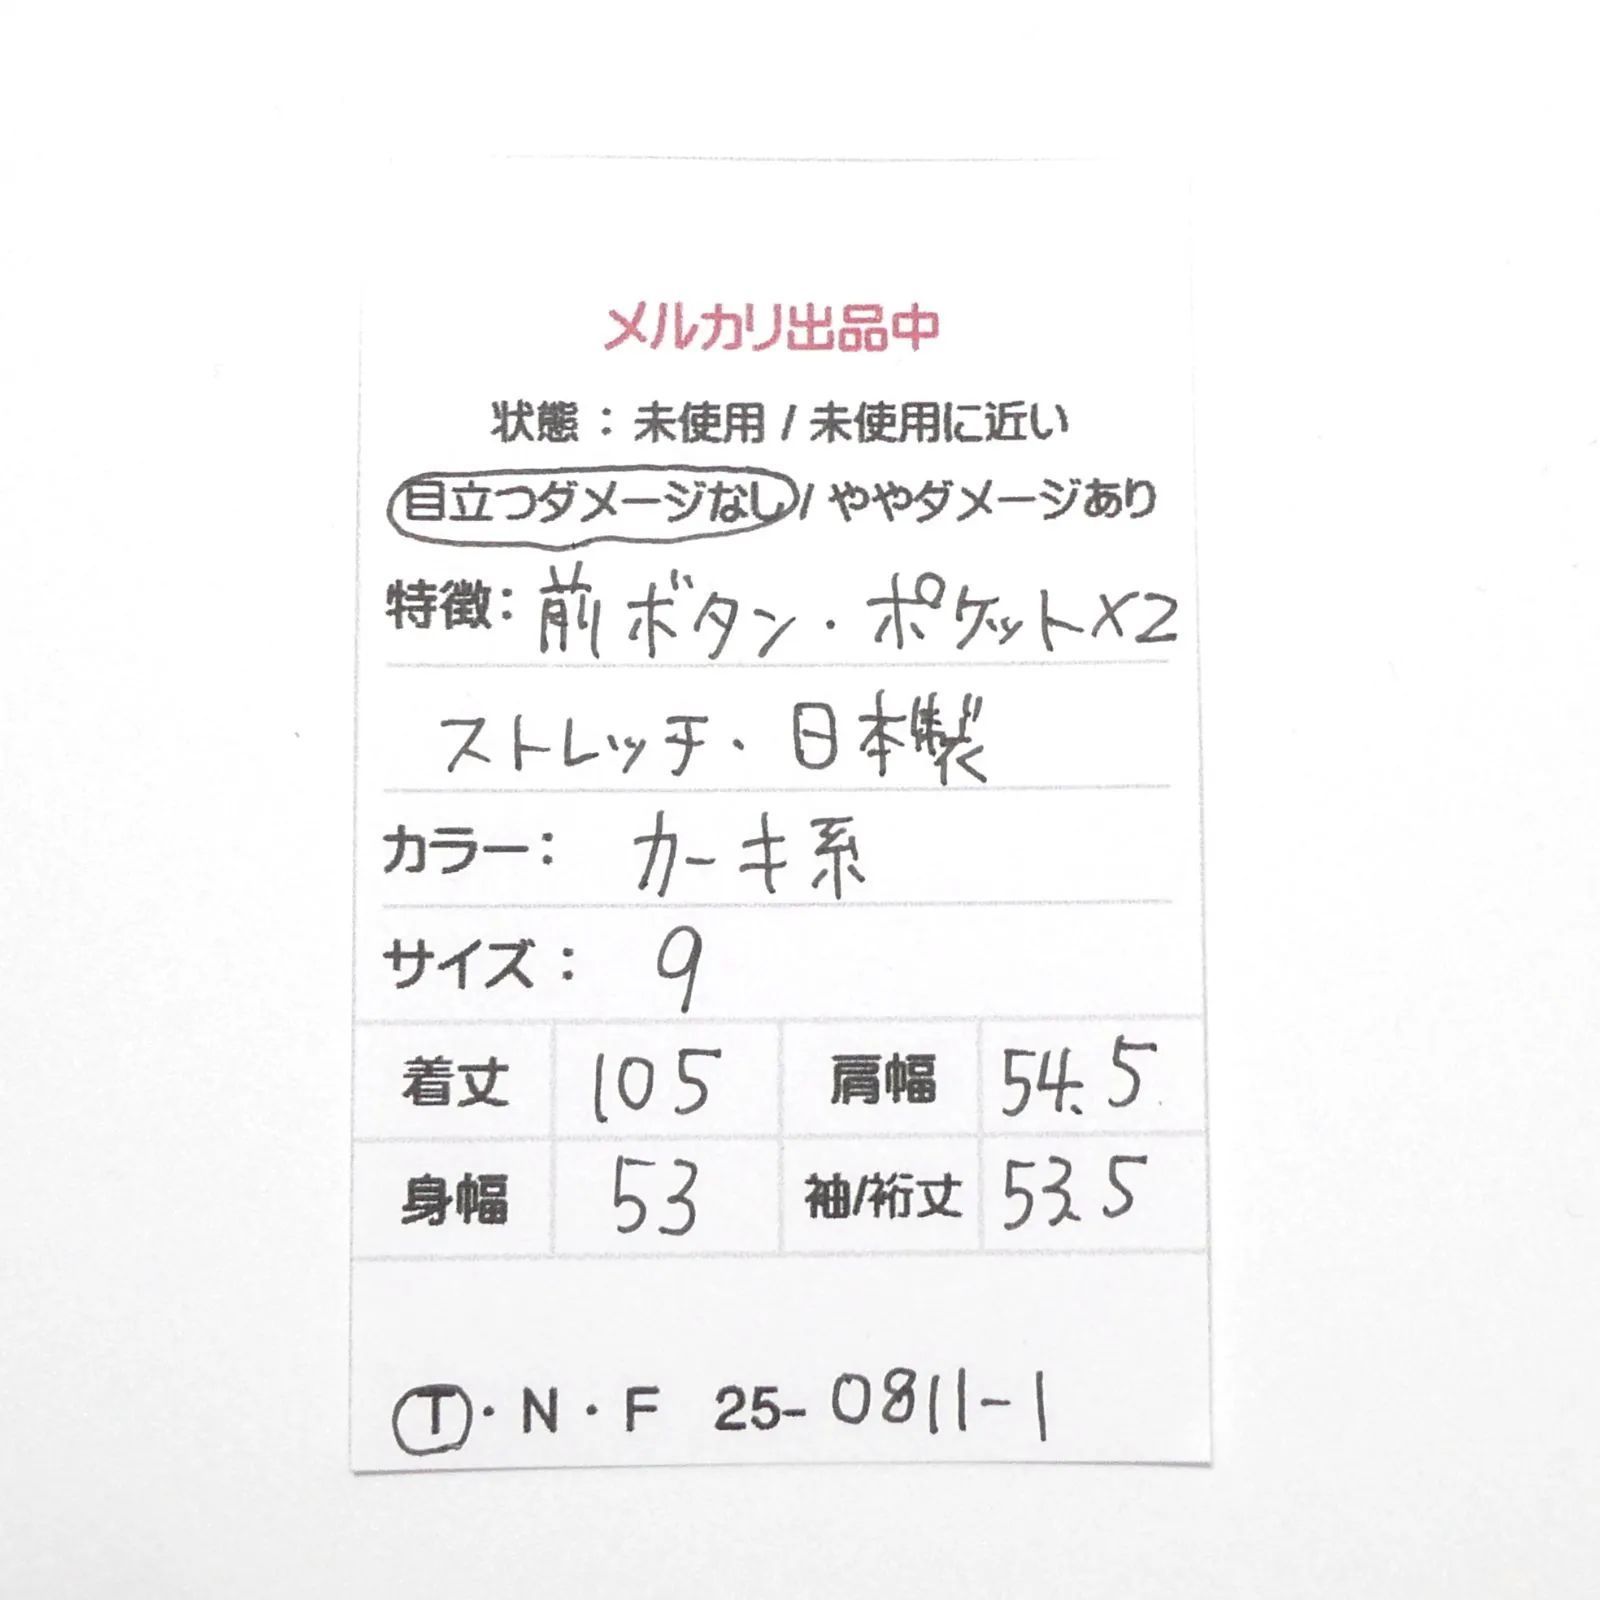 メルカリ出品中
状態：未使用 / 未使用に近い
目立つダメージなし / ややダメージあり
特徴：前ボタン・ポケット×2
ストレッチ・日本製
カラー：カーキ系
サイズ：9
着丈 105 肩幅 54.5
身幅 53 袖/裄丈 53.5
T・N・F 25-0811-1